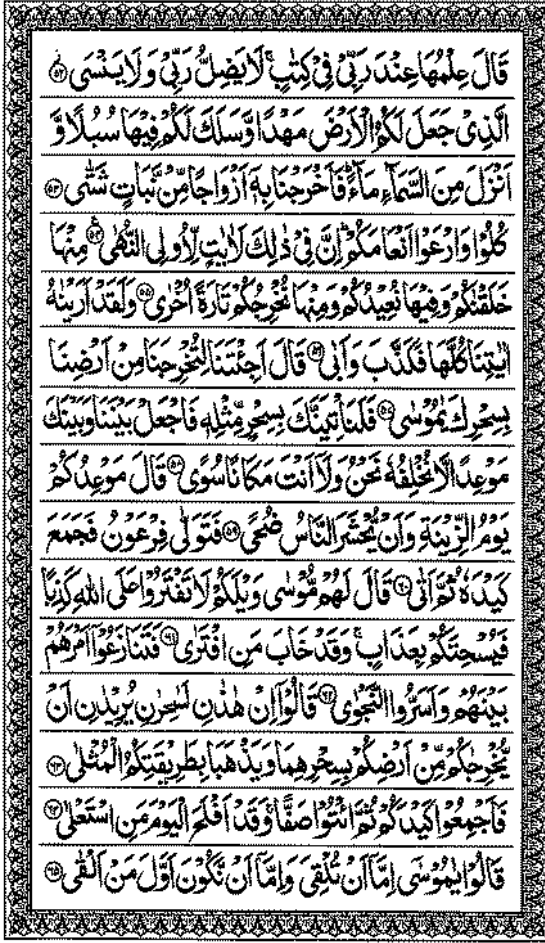 قَالَ عِلْمُهَا عِنْدَ رَبِّیْ فِیْ كِتٰبٍ ۚ لَا یَضِلُّ رَبِّیْ وَ لَا یَنْسَی ۙ۝۵۲
الَّذِیْ جَعَلَ لَكُمُ الْاَرْضَ مَهْدًا وَّ سَلَكَ لَكُمْ فِیْهَا سُبُلًا وَّ
اَنْزَلَ مِنَ السَّمَآءِ مَآءً ؕ فَاَخْرَجْنَا بِهٖۤ اَزْوَاجًا مِّنْ نَّبَاتٍ شَتّٰی ۝۵۳
كُلُوْا وَ ارْعَوْا اَنْعَامَكُمْ ؕ اِنَّ فِیْ ذٰلِكَ لَاٰیٰتٍ لِّاُولِی النُّهٰی ۠۝۵۴ مِنْهَا
خَلَقْنٰكُمْ وَ فِیْهَا نُعِیْدُكُمْ وَ مِنْهَا نُخْرِجُكُمْ تَارَةً اُخْرٰی ۝۵۵ وَ لَقَدْ اَرَیْنٰهُ
اٰیٰتِنَا كُلَّهَا فَكَذَّبَ وَ اَبٰی ۝۵۶ قَالَ اَجِئْتَنَا لِتُخْرِجَنَا مِنْ اَرْضِنَا
بِسِحْرِكَ یٰمُوْسٰی ۝۵۷ فَلَنَاْتِیَنَّكَ بِسِحْرٍ مِّثْلِهٖ فَاجْعَلْ بَیْنَنَا وَ بَیْنَكَ
مَوْعِدًا لَّا نُخْلِفُهٗ نَحْنُ وَ لَاۤ اَنْتَ مَكَانًا سُوًی ۝۵۸ قَالَ مَوْعِدُكُمْ
یَوْمُ الزِّیْنَةِ وَ اَنْ یُّحْشَرَ النَّاسُ ضُحًی ۝۵۹ فَتَوَلّٰی فِرْعَوْنُ فَجَمَعَ
كَیْدَهٗ ثُمَّ اَتٰی ۝۶۰ قَالَ لَهُمْ مُّوْسٰی وَیْلَكُمْ لَا تَفْتَرُوْا عَلَی اللّٰهِ كَذِبًا
فَیُسْحِتَكُمْ بِعَذَابٍ ۚ وَ قَدْ خَابَ مَنِ افْتَرٰی ۝۶۱ فَتَنَازَعُوْۤا اَمْرَهُمْ
بَیْنَهُمْ وَ اَسَرُّوا النَّجْوٰی ۝۶۲ قَالُوْۤا اِنْ هٰذٰنِ لَسٰحِرٰنِ یُرِیْدٰنِ اَنْ
یُّخْرِجٰكُمْ مِّنْ اَرْضِكُمْ بِسِحْرِهِمَا وَ یَذْهَبَا بِطَرِیْقَتِكُمُ الْمُثْلٰی ۝۶۳
فَاَجْمِعُوْا كَیْدَكُمْ ثُمَّ ائْتُوْا صَفًّا ۚ وَ قَدْ اَفْلَحَ الْیَوْمَ مَنِ اسْتَعْلٰی ۝۶۴
قَالُوْا یٰمُوْسٰۤی اِمَّاۤ اَنْ تُلْقِیَ وَ اِمَّاۤ اَنْ نَّكُوْنَ اَوَّلَ مَنْ اَلْقٰی ۝۶۵